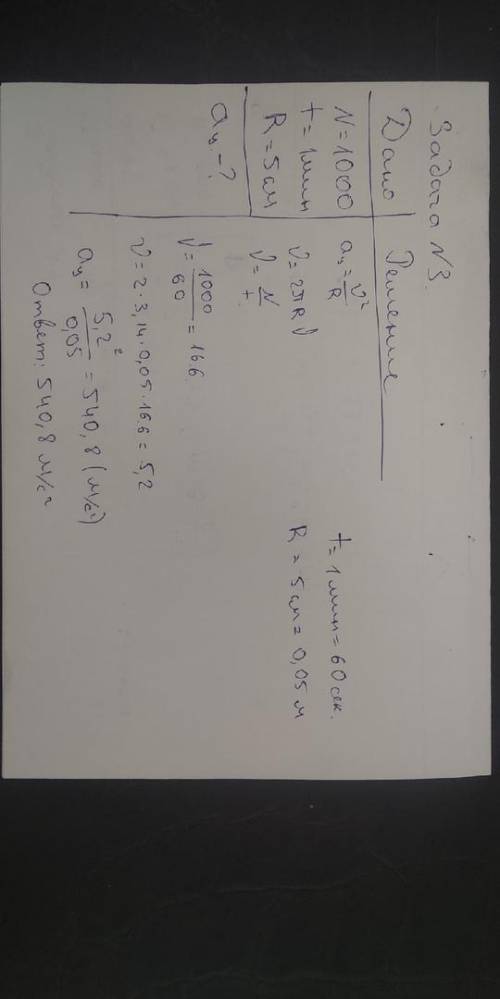 Задача №3.
Дано
N=1000
t=1мин
R=5см
aц-?
Решение
aц=v²/R
v=2πRν
ν=N/t
ν=1000/60=16.6
v=2·3,14·0,05·16.6=5,2
aц=5,2²/0,05=540,8(м/с²)
Ответ: 540,8 м/с²
t=1мин=60сек.
R=5см=0,05м